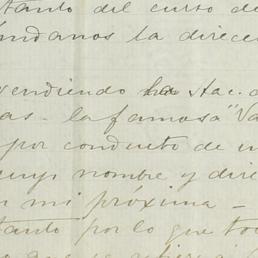 tanto del curso de
índanos la direcc
vendiendo la Hac. d
as - la famosa "Va
por conducto de u
cuyo nombre y dire
n mi próxima -
tanto por lo que to